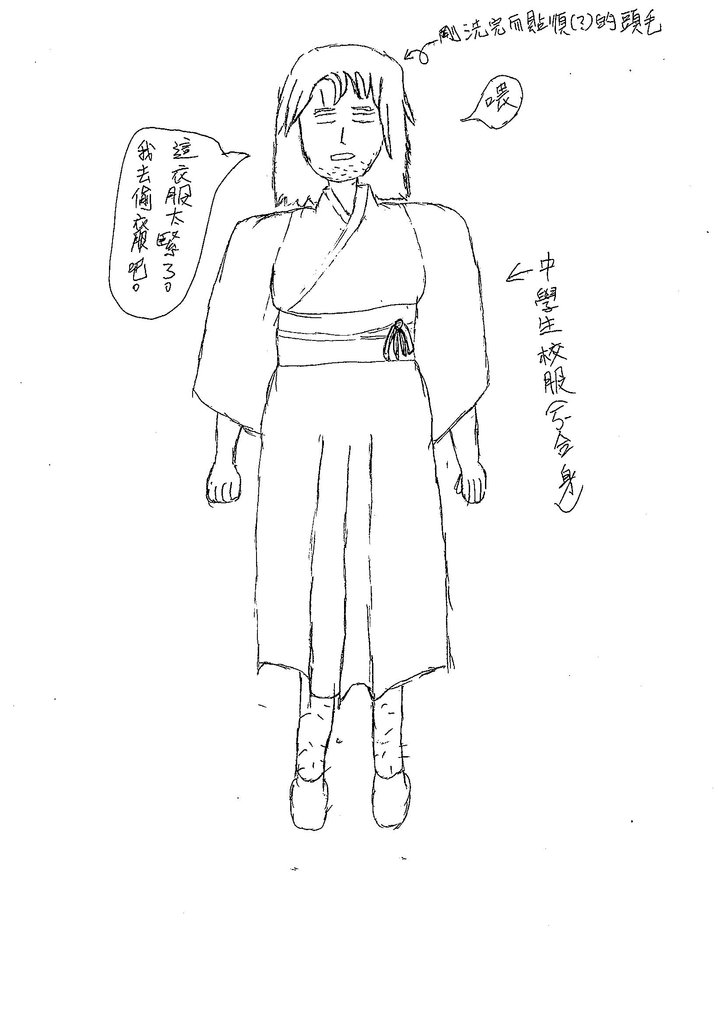 剛洗完而貼順(?)的頭毛
喂
這衣服太緊了。
我去偷衣服吧。
中學生校服(不合身)